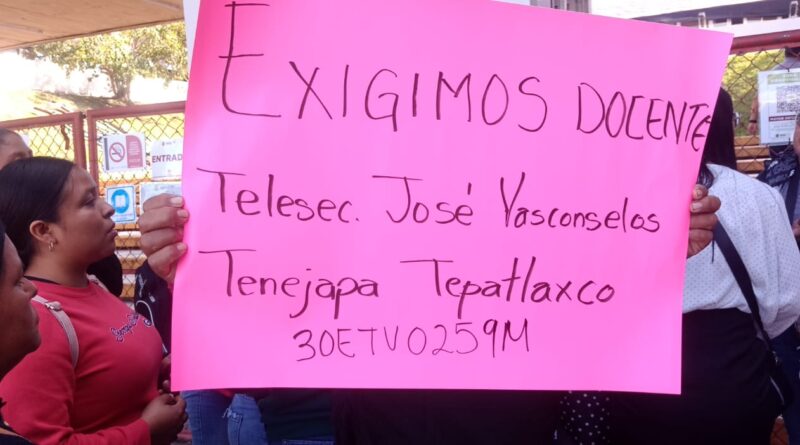 EXIGIMOS DOCENTE
Telesec. José Vasconselos
Tenejapa Tepatlaxco
30ETV0259M
ENTRADA